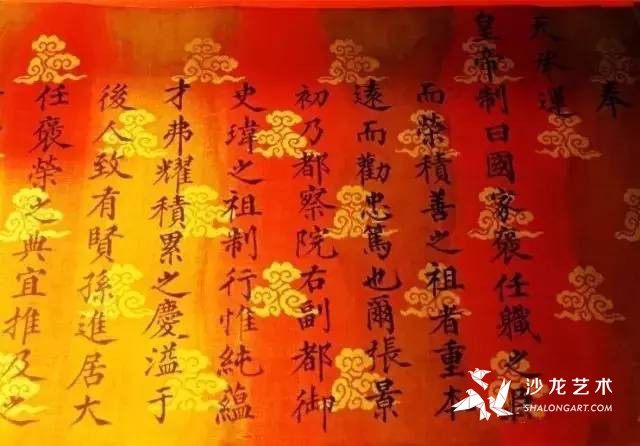 奉
天承運
皇帝制曰國家褒任職之臣
而榮積善之祖者重本
遠而勸忠篤也爾張景
初乃都察院右副都御
史瑋之祖制行惟純蘊
才弗耀積累之慶溢于
後人致有賢孫進居大
任褒榮之典宜推及之
沙龙艺术
SHALONGART.COM